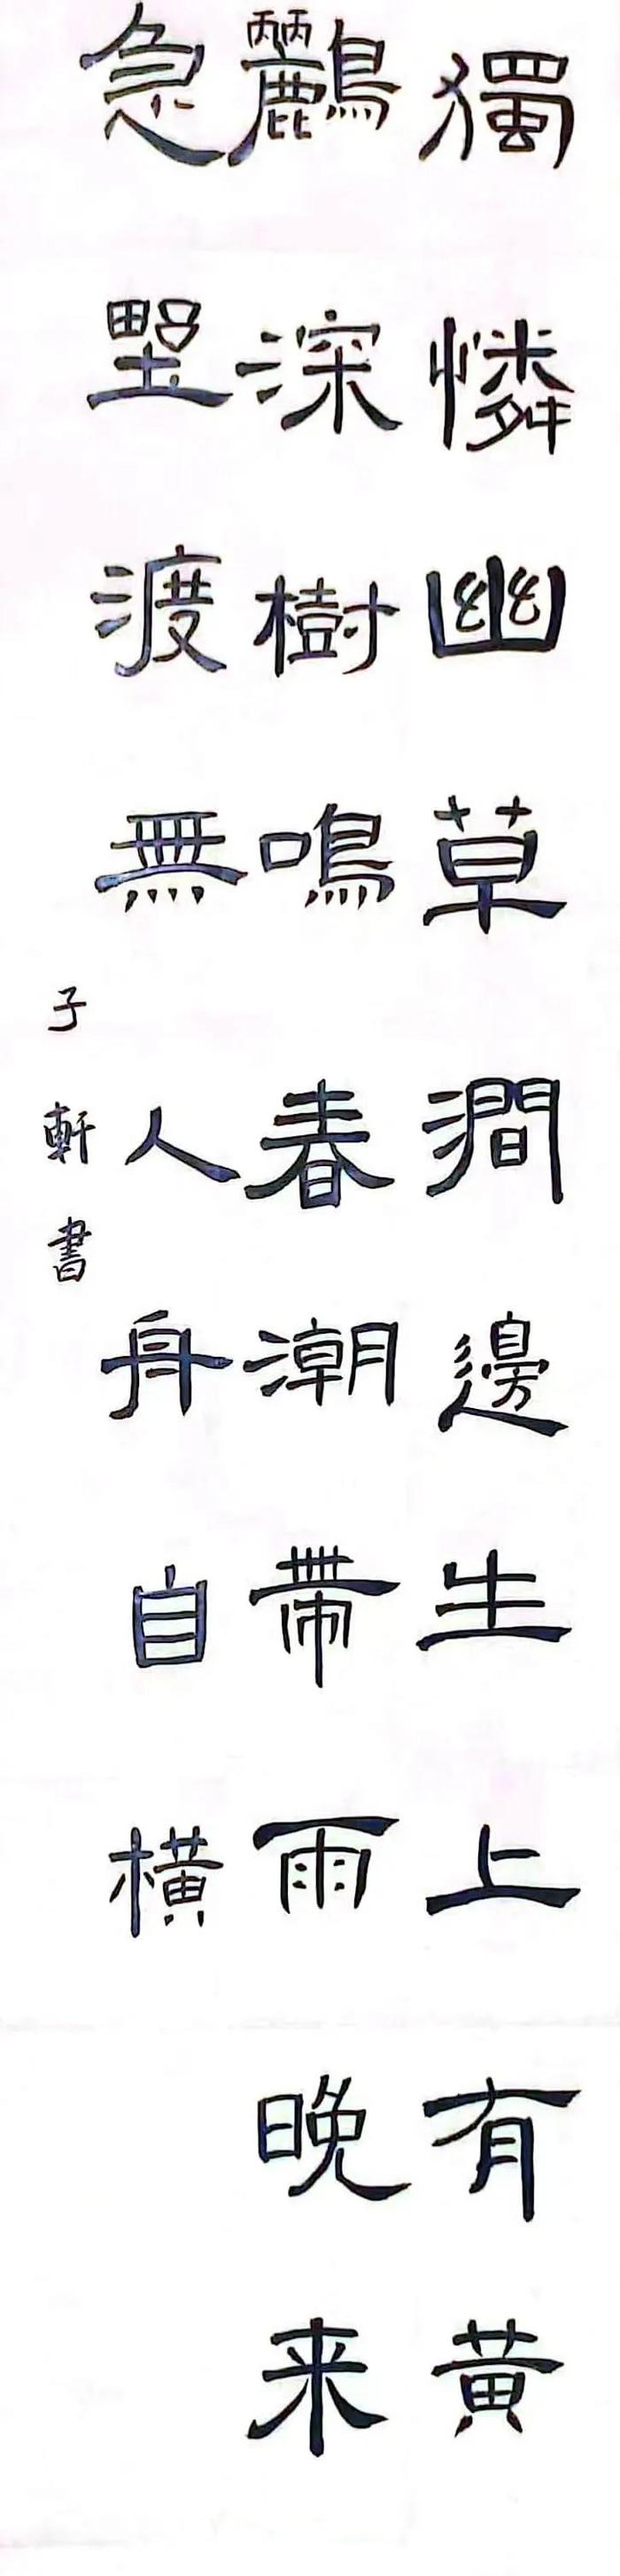 獨憐幽草澗邊生上有黃
鸝深樹鳴春潮帶雨晚来
急壄渡無人舟自橫
子軒書